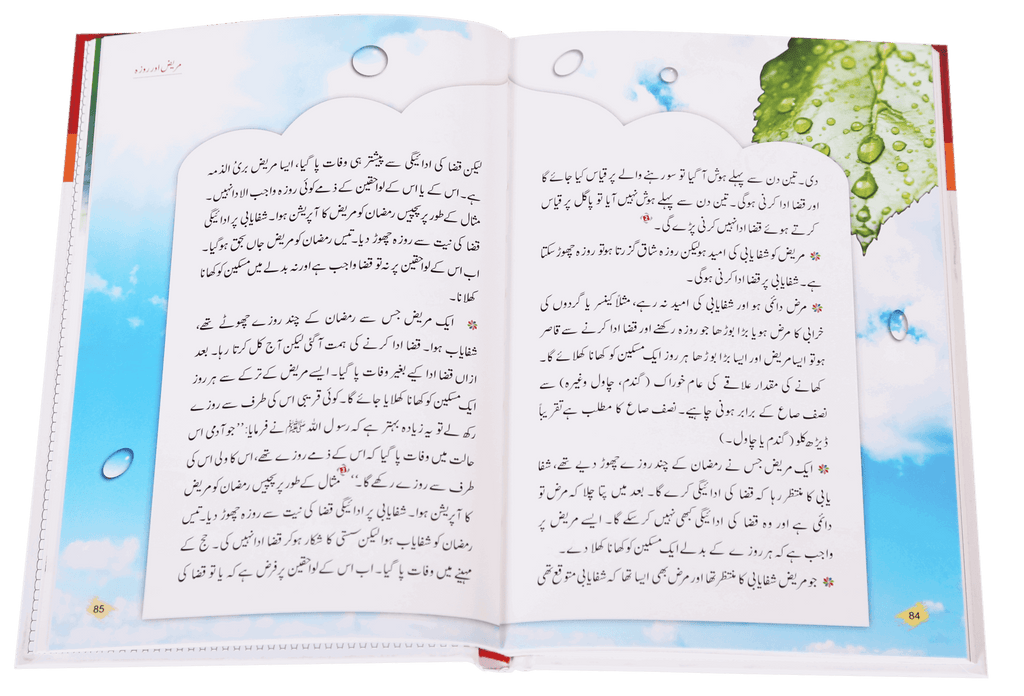 دی۔ تین دن سے پہلے ہوش آ گیا تو سو رہنے والے پر قیاس کیا جائے گا
اور قضا ادا کرنی ہوگی۔ تین دن سے پہلے ہوش نہیں آیا تو پاگل پر قیاس
کرتے ہوئے قضا ادا نہیں کرنی پڑے گی۔
مریض کو شفایابی کی امید ہو لیکن روزہ شاق گزرتا ہو تو روزہ چھوڑ سکتا
ہے۔ شفایابی پر قضا ادا کرنی ہوگی۔
مرض دائمی ہو اور شفایابی کی امید نہ رہے، مثلاً کینسر یا گردوں کی
خرابی کا مرض ہو یا بڑا بوڑھا جو روزہ رکھنے اور قضا ادا کرنے سے قاصر
ہو تو ایسا مریض اور ایسا بڑا بوڑھا ہر روز ایک مسکین کو کھانا کھلائے گا۔
کھانے کی مقدار علاقے کی عام خوراک (گندم، چاول وغیرہ) سے
نصف صاع کے برابر ہونی چاہیے۔ نصف صاع کا مطلب ہے تقریباً
ڈیڑھ کلو (گندم یا چاول۔)
ایک مریض جس نے رمضان کے چند روزے چھوڑ دیے تھے، شفا
یابی کا منتظر رہا کہ قضا کی ادائیگی کرے گا۔ بعد میں پتا چلا کہ مرض تو
دائمی ہے اور وہ قضا کی ادائیگی کبھی نہیں کر سکے گا۔ ایسے مریض پر
واجب ہے کہ ہر روزے کے بدلے ایک مسکین کو کھانا کھلا دے۔
جو مریض شفایابی کا منتظر تھا اور مرض بھی ایسا تھا کہ شفایابی متوقع تھی
84
مریض اور روزہ
لیکن قضا کی ادائیگی سے پیشتر ہی وفات پا گیا، ایسا مریض بریٔ الذمہ
ہے۔ اس کے یا اس کے لواحقین کے ذمے کوئی روزہ واجب الادا نہیں۔
مثال کے طور پر پچیس رمضان کو مریض کا آپریشن ہوا۔ شفایابی پر ادائیگی
قضا کی نیت سے روزہ چھوڑ دیا۔ تیس رمضان کو مریض جاں بحق ہو گیا۔
اب اس کے لواحقین پر نہ تو قضا واجب ہے اور نہ بدلے میں مسکین کو کھانا
کھلانا۔
ایک مریض جس سے رمضان کے چند روزے چھوٹے تھے،
شفایاب ہوا۔ قضا ادا کرنے کی ہمت آ گئی لیکن آج کل کرتا رہا۔ بعد
ازاں قضا ادا کیے بغیر وفات پا گیا۔ ایسے مریض کے ترکے سے ہر روز
ایک مسکین کو کھانا کھلایا جائے گا۔ کوئی قریبی اس کی طرف سے روزے
رکھ لے تو یہ زیادہ بہتر ہے کہ رسول اللہ ﷺ نے فرمایا: ’’جو آدمی اس
حالت میں وفات پا گیا کہ اس کے ذمے روزے تھے، اس کا ولی اس کی
طرف سے روزے رکھے گا۔‘‘ مثال کے طور پر پچیس رمضان کو مریض
کا آپریشن ہوا۔ شفایابی پر ادائیگی قضا کی نیت سے روزہ چھوڑ دیا۔ تیس
رمضان کو شفایاب ہوا لیکن سستی کا شکار ہو کر قضا ادا نہیں کی۔ حج کے
مہینے میں وفات پا گیا۔ اب اس کے لواحقین پر فرض ہے کہ یا تو قضا کی
85